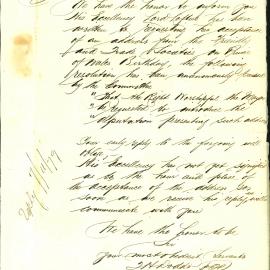 We have the honor to inform you
His Excellency Lord Loftus has been
written to requesting his acceptance
of an address from the Friendly
and Trade Societies on Prince
of Wales Birthday, the following
resolution has been unanimously passed
by the Committee
"That the Right Worshipful the Mayor
be requested to introduce the
deputation presenting such address
Your early reply to the forgoing will
oblige
His Excellency has not yet signified
as to the hour and place of
the acceptance of the address so
soon as we receive his reply will
communicate with you
We have the honor to be
Sir
Your most obedient Servants